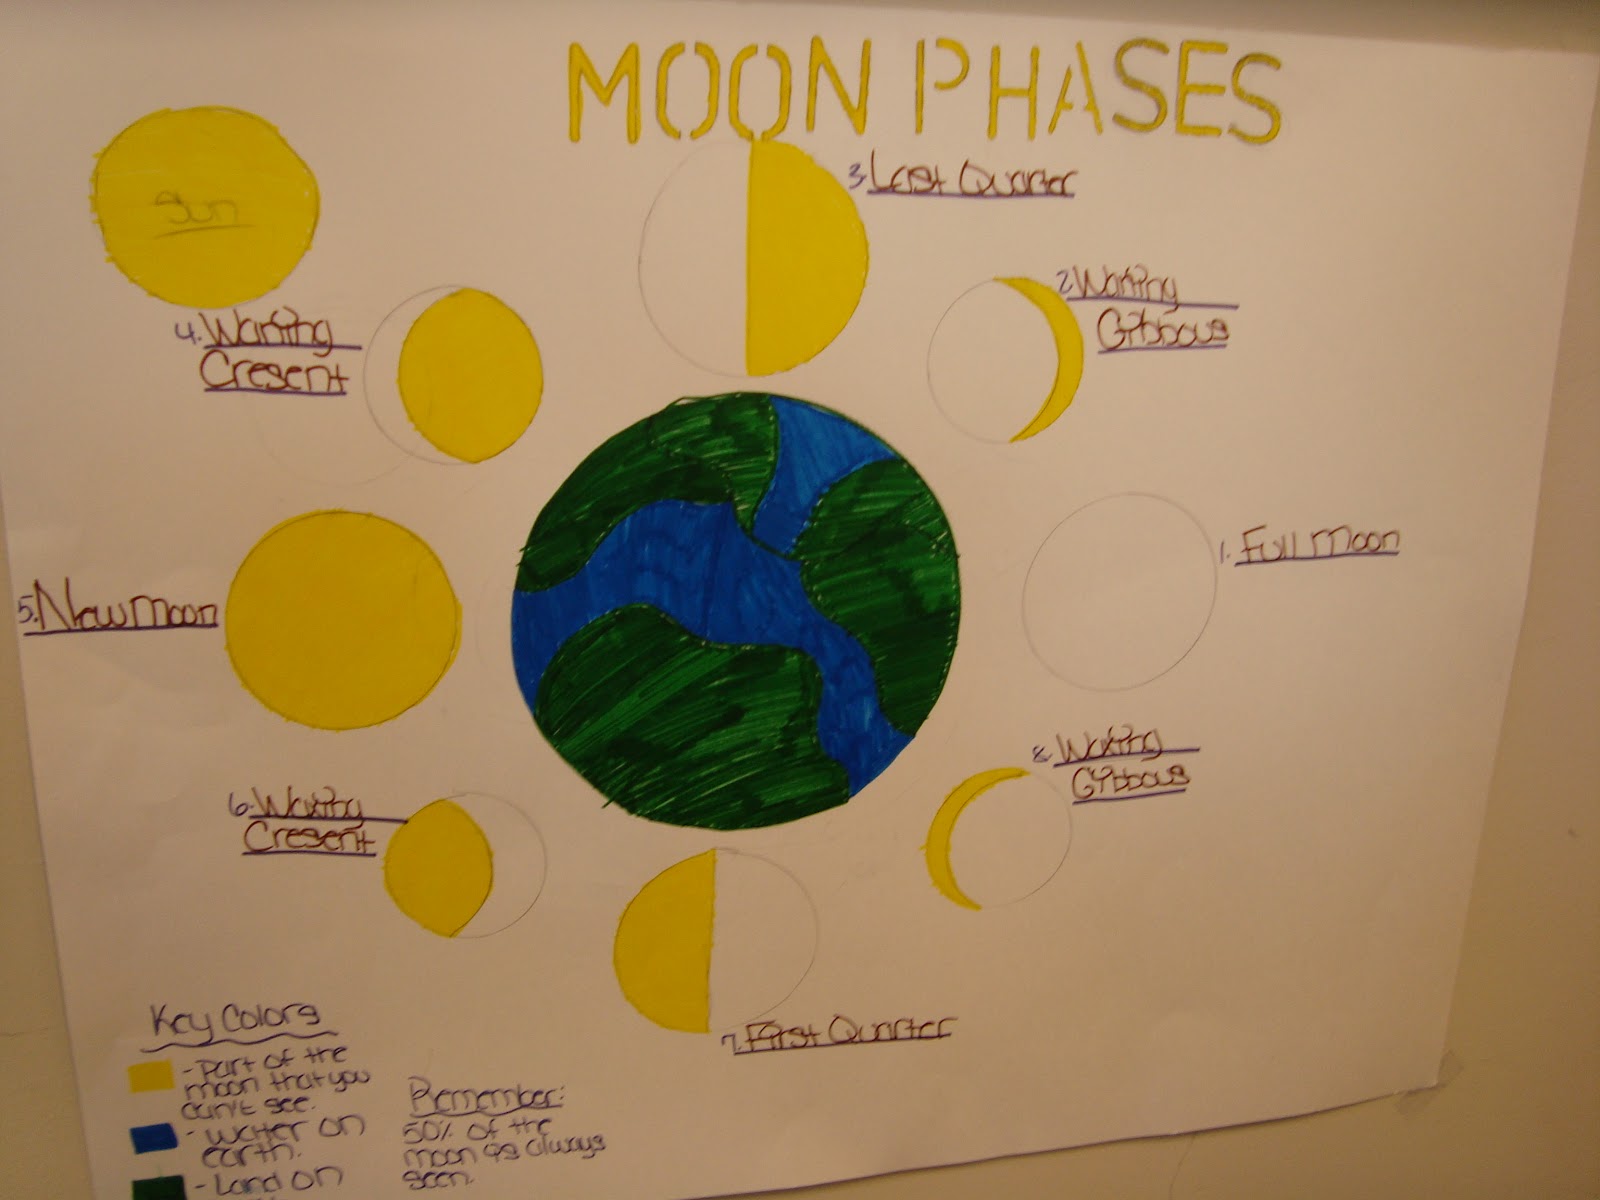 MOON PHASES
Sun
3. Last Quarter
2. Waning
Gibbous
4. Waning
Cresent
1. Full moon
5. New moon
8. Waxing
Gibbous
6. Waxing
Cresent
7. First Quarter
Key Colors
- Part of the
moon that you
can't see.
- Water on
earth.
- Land on
Remember:
50% of the
moon is always
seen.